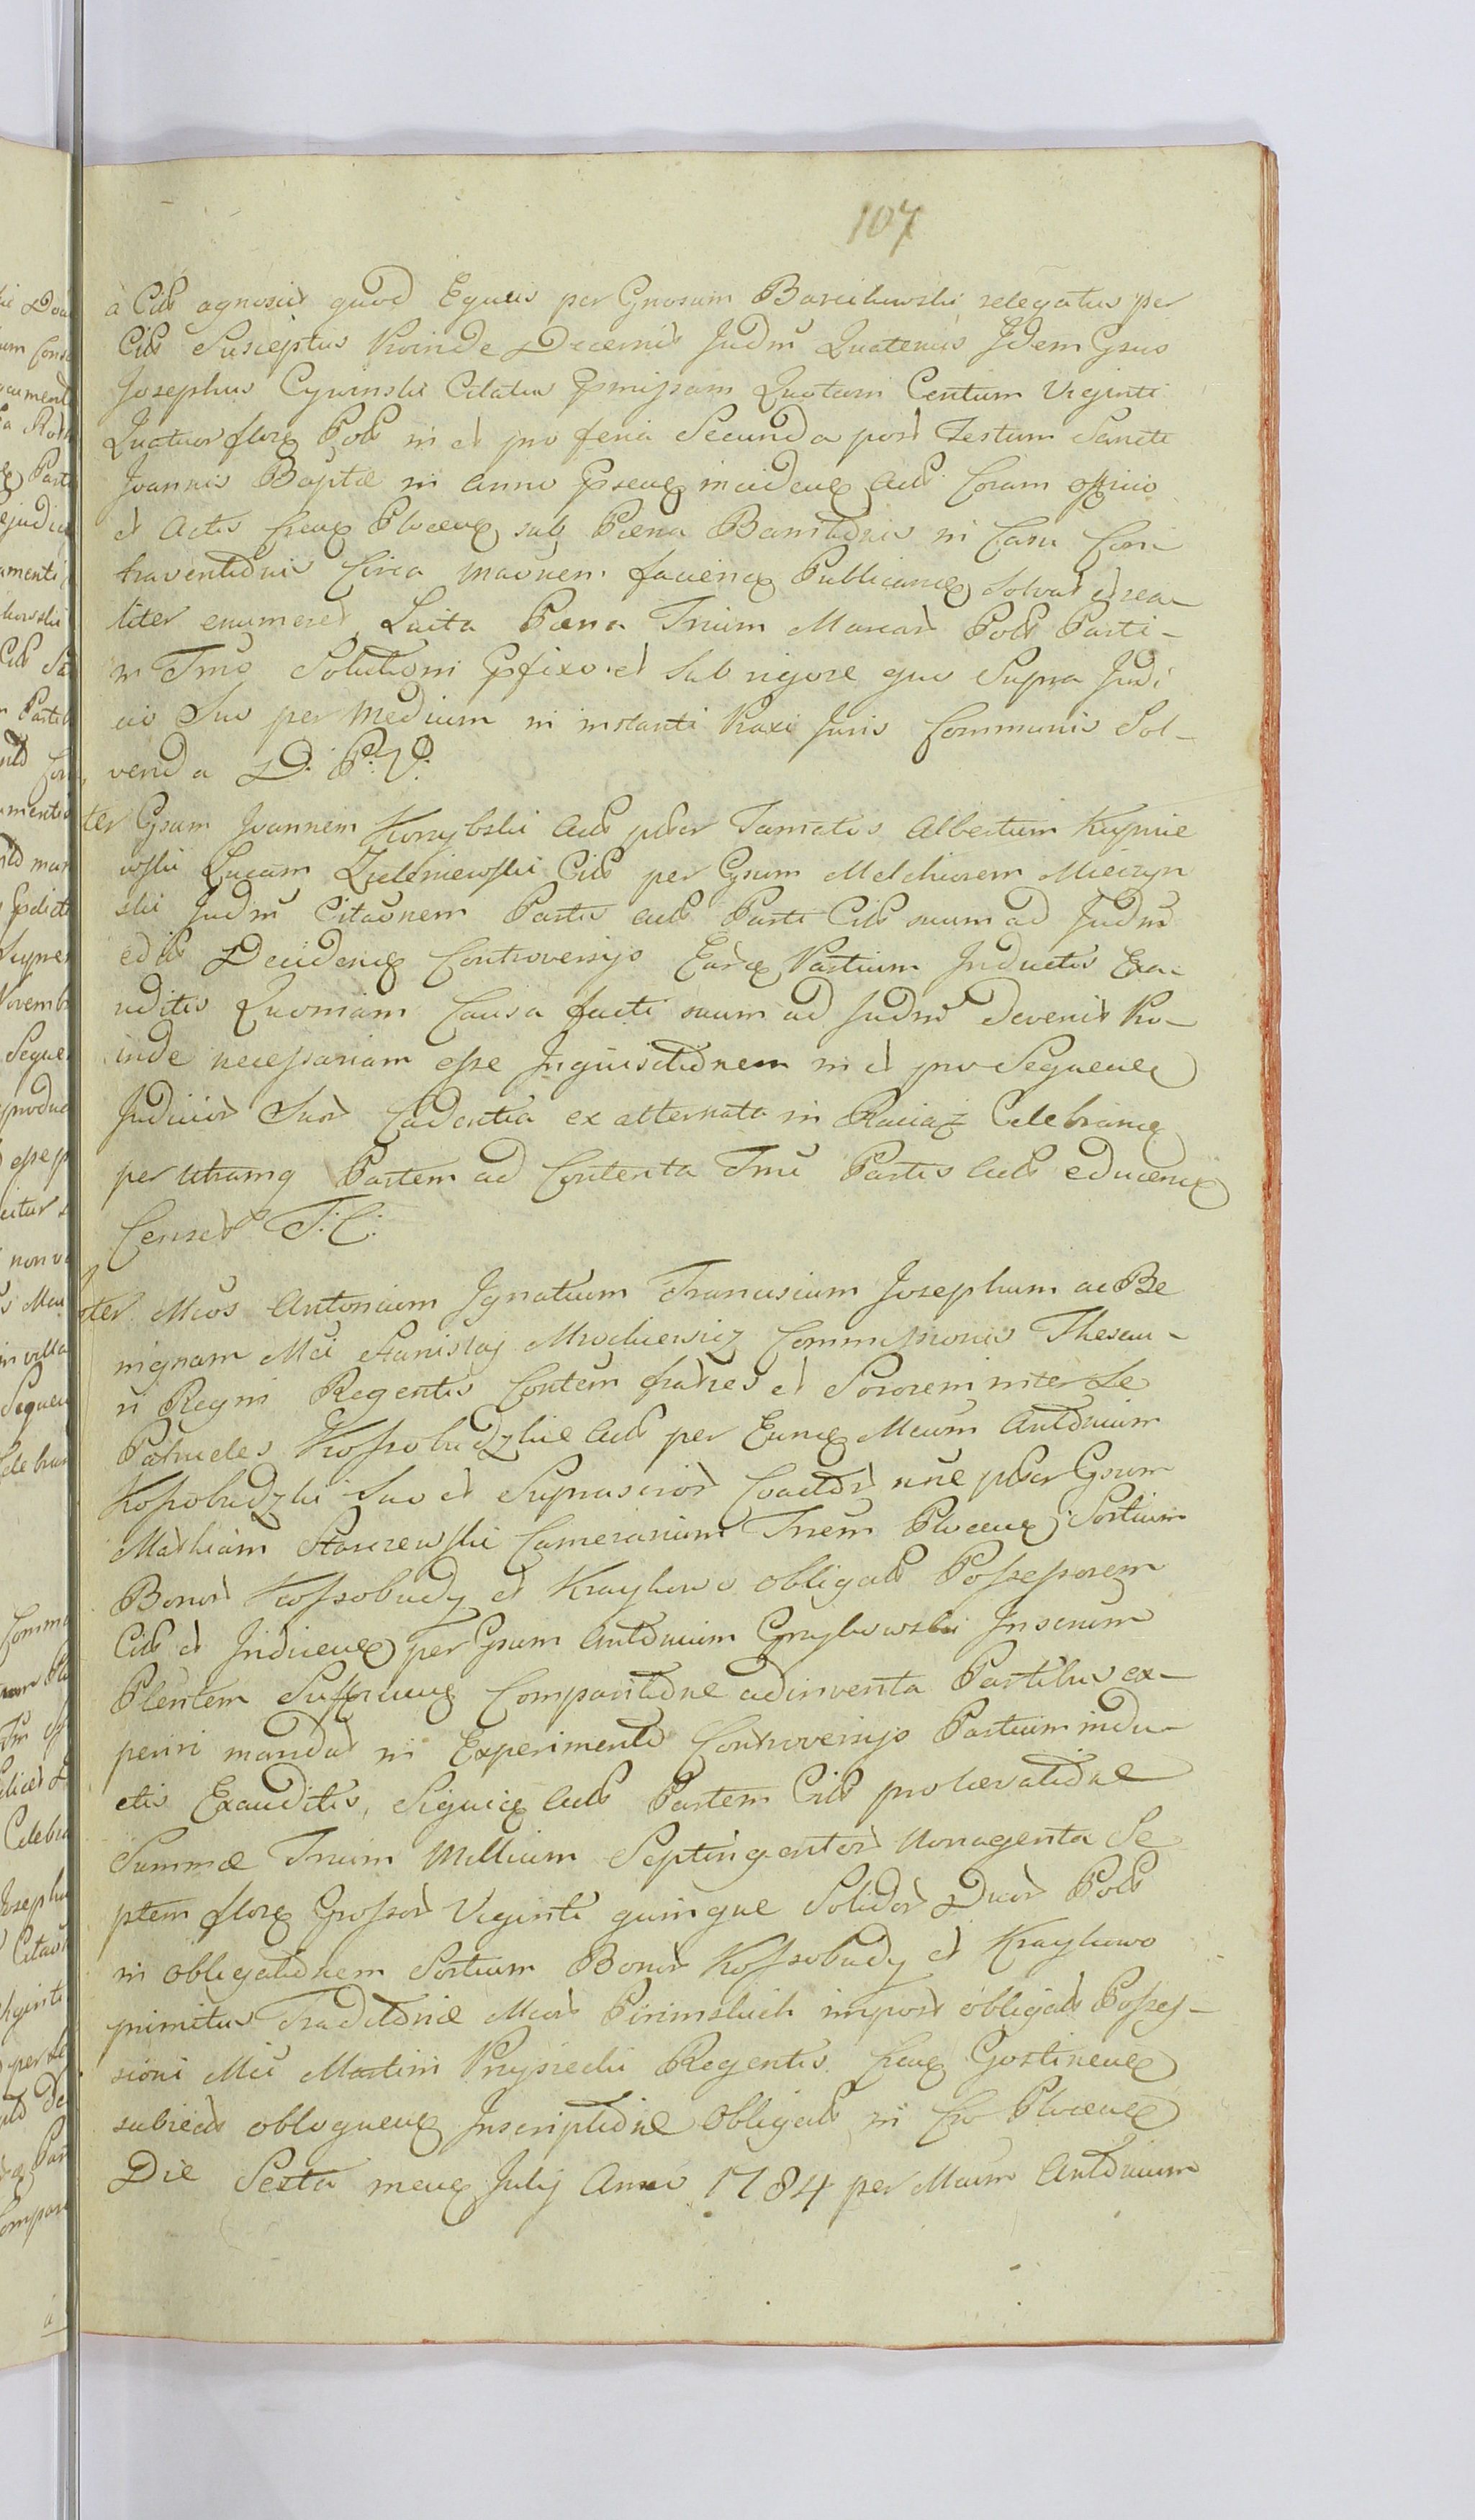 107
à Citt agnoscit quod Equus per Gnosum Barcikowski relegatus per
Citt Susceptus Proinde Decernit Judm Quatenus Idem Gsus
Josephus Cywinski Citatus Pmissam Quotam Centum Viginti
Quatuor florg Poll in et pro feria Secunda post Festum Sancti
Joannis Baptæ in anno Pseng inciden Actt Coram officio
et Actis Cren Plocen sub Pæna Bannitõnis in Casu Con-
traventõnis Circa maõnem facieng Publicang solvat et rea-
liter enumeret, Luita Pæna Trium Marcar Poll Parti-
in Tmo Solutioni Pfixo et sub rigore quo Supra Judi
cio Suo per Medium in instanti Praxi Juris Communis Sol-
venda D: P: V:
ter Gsum Joannem Korzybski Actt pttr Famatos Albertum Kupnie
wski Lucam Zieleniewski Citt per Gsum Melchiorem Mierzyn
ski Judm Citaõnem Partis Actt Parti Citt suum ad Judm
edit Deciden Controversijs Earg Partium Inductis Exa-
uditis Quoniam Causa facti suum ad Judm Devenit Pro-
inde necessariam esse Inquisitõnem in et pro Sequen
Judicior Suor Cadentia ex alternata in Raciąż Celebrang
per utramq Partem ad Contenta Tmi Partis Actt educeng
Censet T: C:
ter Mcos Antonium Ignatium Franciscum Josephum ac Be
nignam Mci Stanislaj Mrockiewicz Commissionis Thesau-
ri Regni Regentis Contem fratres et Sororem inter Se
Patrueles Kossobudzkie Actt per Eung Mcum Antõnium
Kossobudzki Suo et Suprascrior Coactor nne pttr Gsum
Mathiam Starczewski Camerarium Trrem Plocen Sortium
Bonor Kossobudy et Kraykowo obligatt Possessorem
Citt et Inducen per Gsum Antõnium Grzybowski Inscrum
Plentem Sufficien Comparitõne adinventa Partibus ex-
periri mandat in Experimento Controversijs Partium indu-
ctis Exauditis, Siquig Actt Partem Citt pro levatõne
Summæ Trium Millium Septingentor Nonagenta Se
ptem florg Grossor Viginti quinque Solidor Duor Poll
in obligatõnem Sortium Bonor Kossobudy et Kraykowo
primitus Traditõnie Mcor Pirimskich impost obligatt Posses-
sioni Mci Martini Przysiecki Regentis Cren Gostinen
subiectt obloquen Inscriptõne Obligatt in Cro Plocen
Die Sexta meng Julij Anno 1784 per Mcum Antõnium